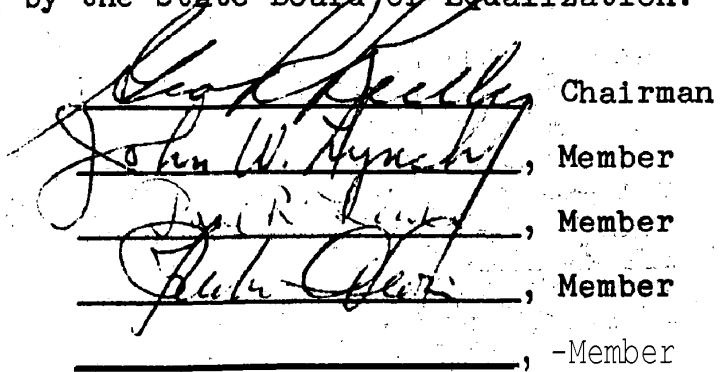 by the State Board of Equalization.
Geo R Reilly, Chairman
John W. Lynch, Member
, Member
, Member
, -Member